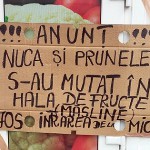 !!! ANUNȚ !!!
NUCA ȘI PRUNELE
S-AU MUTAT ÎN
HALA DE FRUCTE
(MASLINE)
JOS INTRAREA DEU MIC